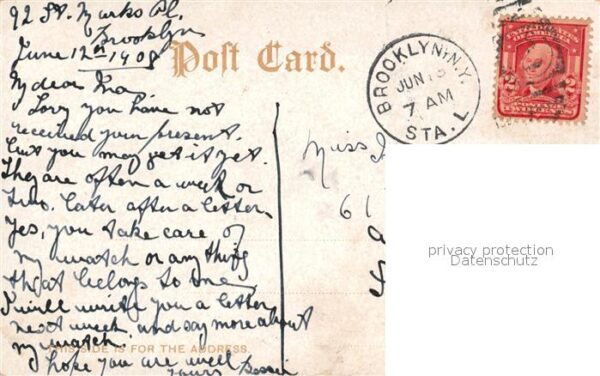 92 St. Marks Pl.
Brooklyn
June 12th 1908
My dear Ina
Sorry you have not
received your present.
but you may get it yet.
They are often a week or
two later after a letter.
Yes, you take care of
my watch or any thing
that belongs to me
I will write you a letter
next week and say more about
my watch.
I hope you are well
yours Bessie
Post Card.
THIS SIDE IS FOR THE ADDRESS.
BROOKLYN, N.Y.
JUN 13
7 AM
STA. L
UNITED STATES
OF AMERICA
2 2
POSTAGE
TWO CENTS
Miss
61
privacy protection
Datenschutz